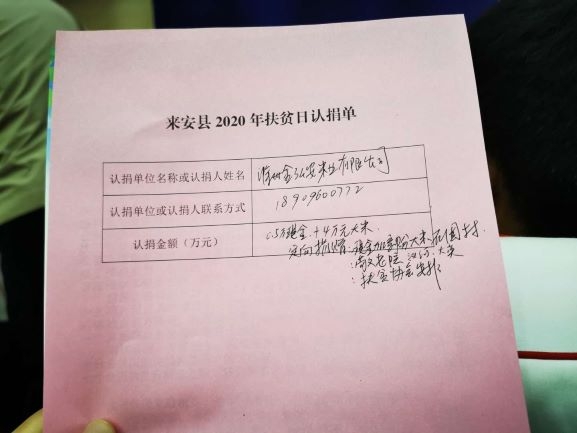 来安县2020年扶贫日认捐单
认捐单位名称或认捐人姓名 滁州金弘安米业有限公司
认捐单位或认捐人联系方式 18909600772
认捐金额(万元) 0.5万现金+4万元大米
定向捐赠:现金加部分大米
:敬老院 大米
:扶贫协会安排